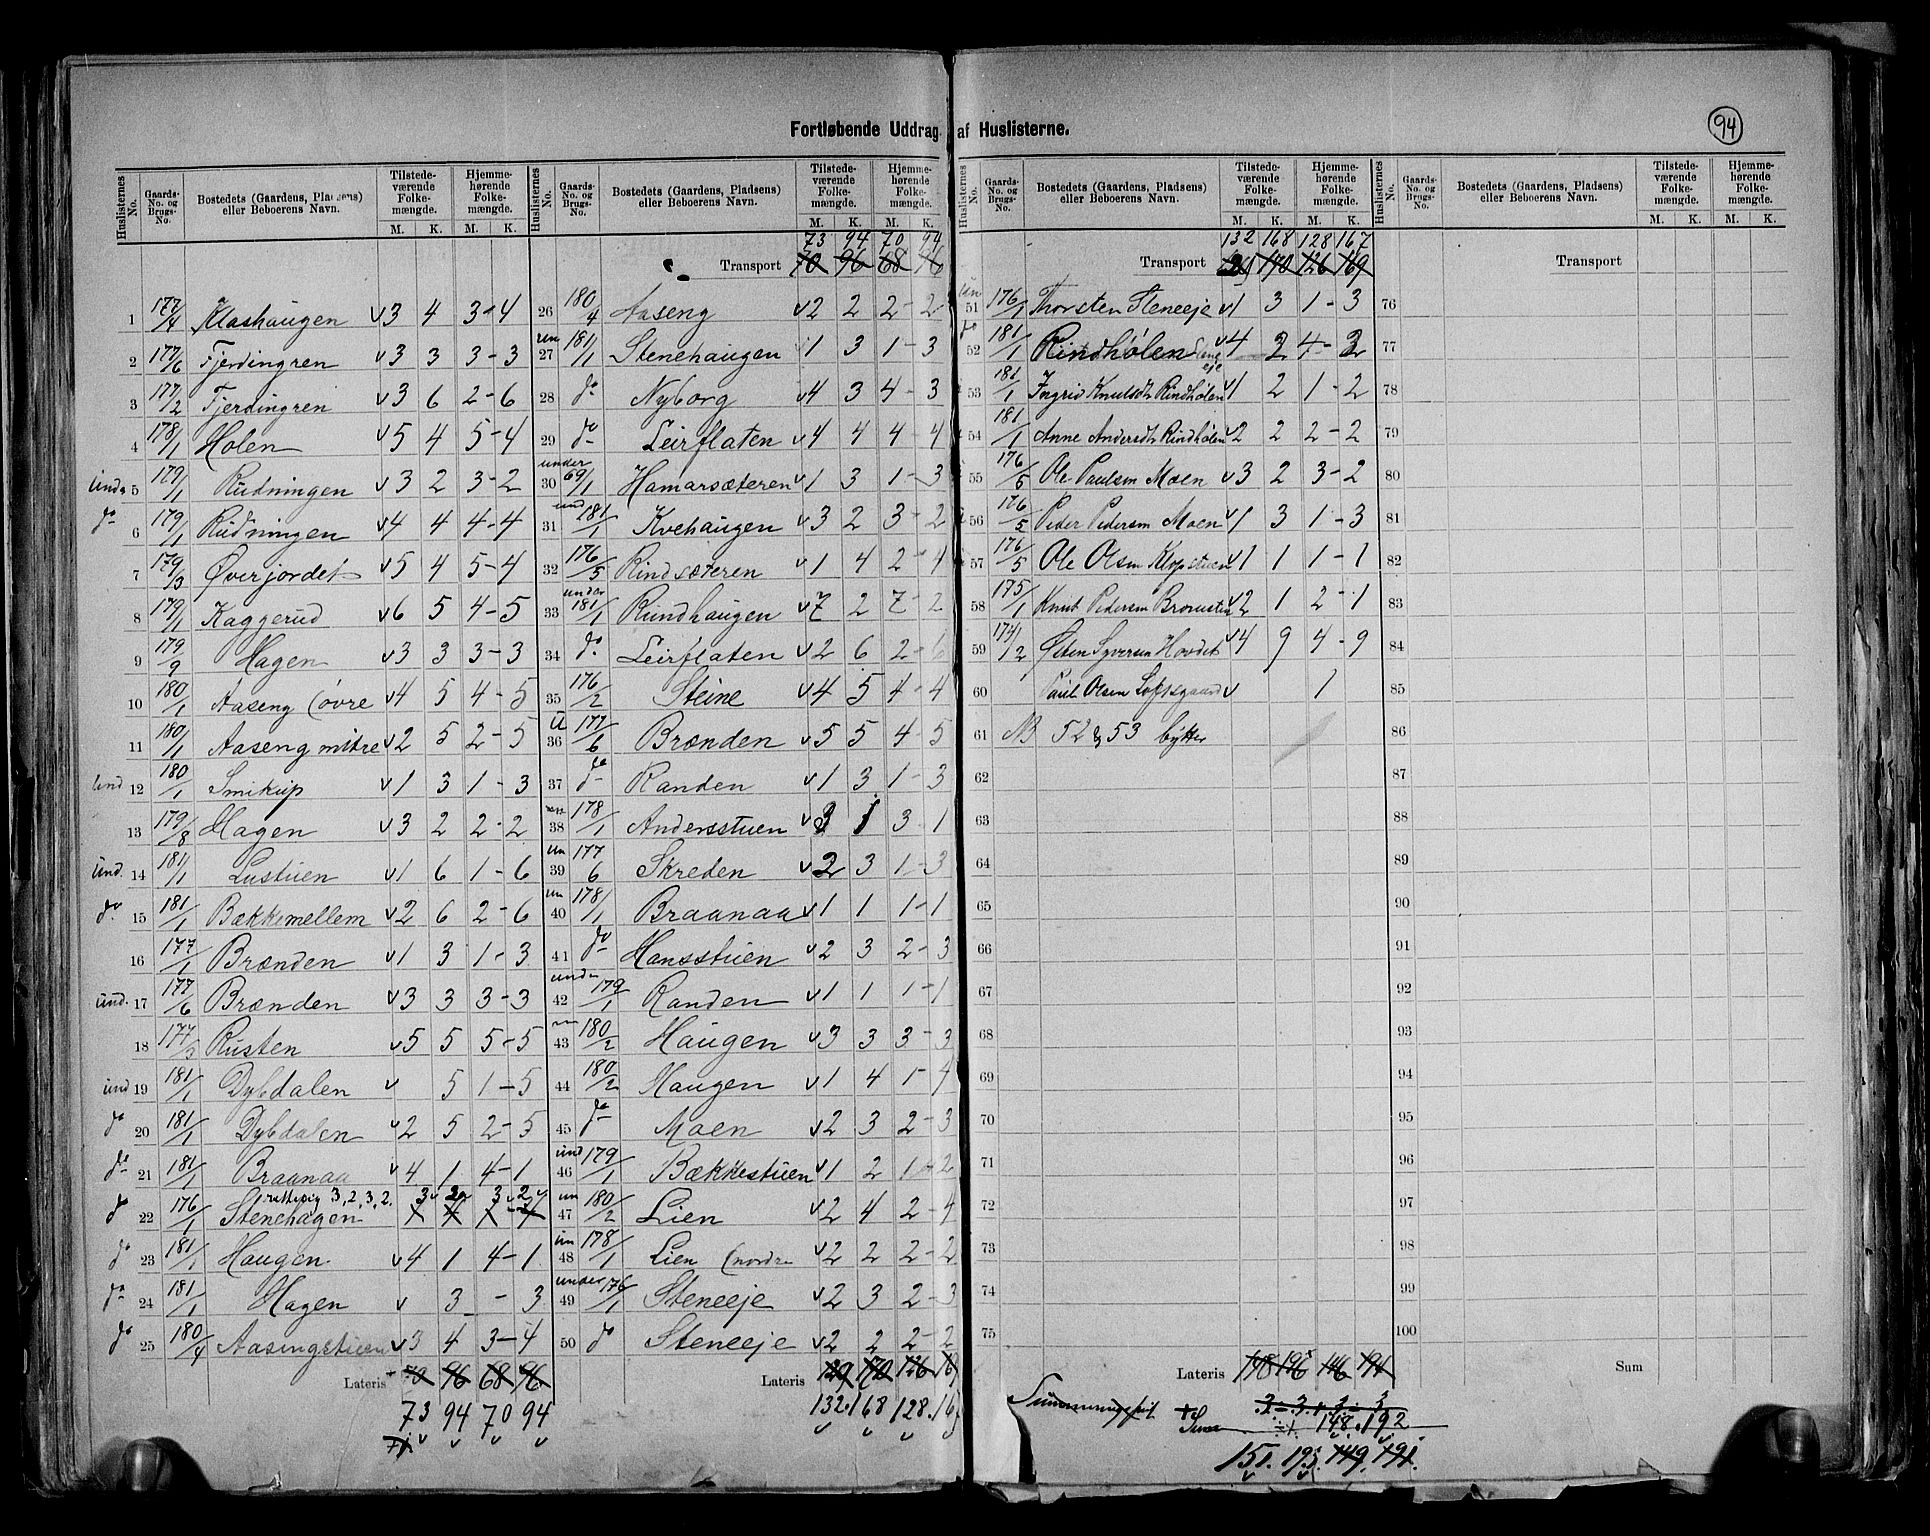 94
Fortløbende Uddrag af Huslisterne.
Huslisternes No. Gaards-No. og Brugs-No. Bostedets (Gaardens, Pladsens) eller Beboerens Navn. Tilstedeværende Folkemængde. M. K. Hjemmehørende Folkemængde. M. K.
1 177/4 Klashaugen v 3 4 3-4
2 177/6 Fjerdingren v 3 3 3-3
3 177/2 Fjerdingren v 3 6 2-6
4 178/1 Holen v 5 4 5-4
5 179/1 Rudningen v 3 2 3-2
do 6 179/1 Rudningen v 4 4 4-4
7 179/3 Øverjordet v 5 4 5-4
8 179/1 Kaggerud v 6 5 4-5
9 179/9 Hagen v 3 3 3-3
10 180/1 Aaseng (øvre v 4 5 4-5
11 180/1 Aaseng mitre v 2 5 2-5
und 12 180/1 Smikup v 1 3 1-3
13 179/8 Hagen v 3 2 2-2
und. 14 181/1 Lustuen v 1 6 1-6
do 15 181/1 Bækkemellem v 2 6 2-6
16 177/1 Brænden v 1 3 1-3
und. 17 177/6 Brænden v 3 3 3-3
18 177/3 Rusten v 5 5 5-5
und 19 181/1 Dybdalen v 5 1-5
do 20 181/1 Dybdalen v 2 5 2-5
do 21 181/1 Braanaa v 4 1 4-1
do 22 176/1 Stenehagen 3, 2, 3, 2. 3 2 3 2
do 23 181/1 Haugen v 4 1 4-1
do 24 181/1 Hagen v 3 - 3
do 25 180/4 Aasengstuen v 3 4 3-4
Lateris 70 96 68 96
73 94 70 94
71
Huslisternes No. Gaards-No. og Brugs-No. Bostedets (Gaardens, Pladsens) eller Beboerens Navn. Tilstedeværende Folkemængde. M. K. Hjemmehørende Folkemængde. M. K.
73 94 70 94
Transport 70 96 68 96
26 180/4 Aaseng v 2 2 2-2
un 27 181/1 Stenehaugen v 1 3 1-3
28 do Nyborg v 4 3 4-3
29 do Leirflaten v 4 4 4-4
under 30 69/1 Hamarsæteren v 1 3 1-3
und 31 181/1 Kvehaugen v 3 2 3-2
32 176/5 Rindsæteren v 1 4 2-4
under 33 181/1 Rundhaugen v 7 2 7-2
34 do Leirflaten v 2 6 2-6
35 176/2 Steine v 4 5 4-4
u 36 177/6 Brænden v 5 5 4-5
37 do Randen v 1 3 1-3
38 178/1 Andersstuen v 3 1 3 1
un 39 177/6 Skreden v 2 3 1-3
un 40 178/1 Braanaa v 1 1 1-1
41 do Hansstuen v 2 3 2-3
under 42 179/1 Randen v 1 1 1-1
43 180/2 Haugen v 3 3 3-3
44 180/2 Haugen v 1 4 1-4
45 do Moen v 2 3 2-3
und 46 179/1 Bækkestuen v 1 2 1-2
un 47 180/2 Lien v 2 4 2-4
un 48 178/1 Lien (nordre v 2 2 2-2
under 49 176/1 Steneeje v 2 3 2-3
50 do Steneeje v 2 2 2-2
Lateris 129 170 126
132. 168 128.
Huslisternes No. Gaards-No. og Brugs-No. Bostedets (Gaardens, Pladsens) eller Beboerens Navn. Tilstedeværende Folkemængde. M. K. Hjemmehørende Folkemængde. M. K.
132 168 128 167
Transport 170 126 169
51 176/1 Thorsten Steneeje v 1 3 1-3
do 52 181/1 Rindhølen v 4 2 4-2
53 181/1 Ingrid Knutsdt. Rindhølen v 1 2 1-2
54 181/1 Anne Andersdt. Rindhølen v 2 2 2-2
55 176/5 Ole Paulsen Moen v 3 2 3-2
56 176/5 Peder Pedersen Moen v 1 3 1-3
57 176/5 Ole Olsen v 1 1 1-1
58 175/1 Knut Pedersen v 2 1 2-1
59 174/2 Østen Syversen Hovdet v 4 9 4-9
60 Paul Olsen v 1
61 NB 52 & 53 bytter
62
63
64
65
66
67
68
69
70
71
72
73
74
75
Lateris 148 195 146 194
Summeringsfeil + 3-3+3-3
148. 192
151. 193. 149. 191.
Huslisternes No. Gaards-No. og Brugs-No. Bostedets (Gaardens, Pladsens) eller Beboerens Navn. Tilstedeværende Folkemængde. M. K. Hjemmehørende Folkemængde. M. K.
Transport
76
77
78
79
80
81
82
83
84
85
86
87
88
89
90
91
92
93
94
95
96
97
98
99
100
Sum